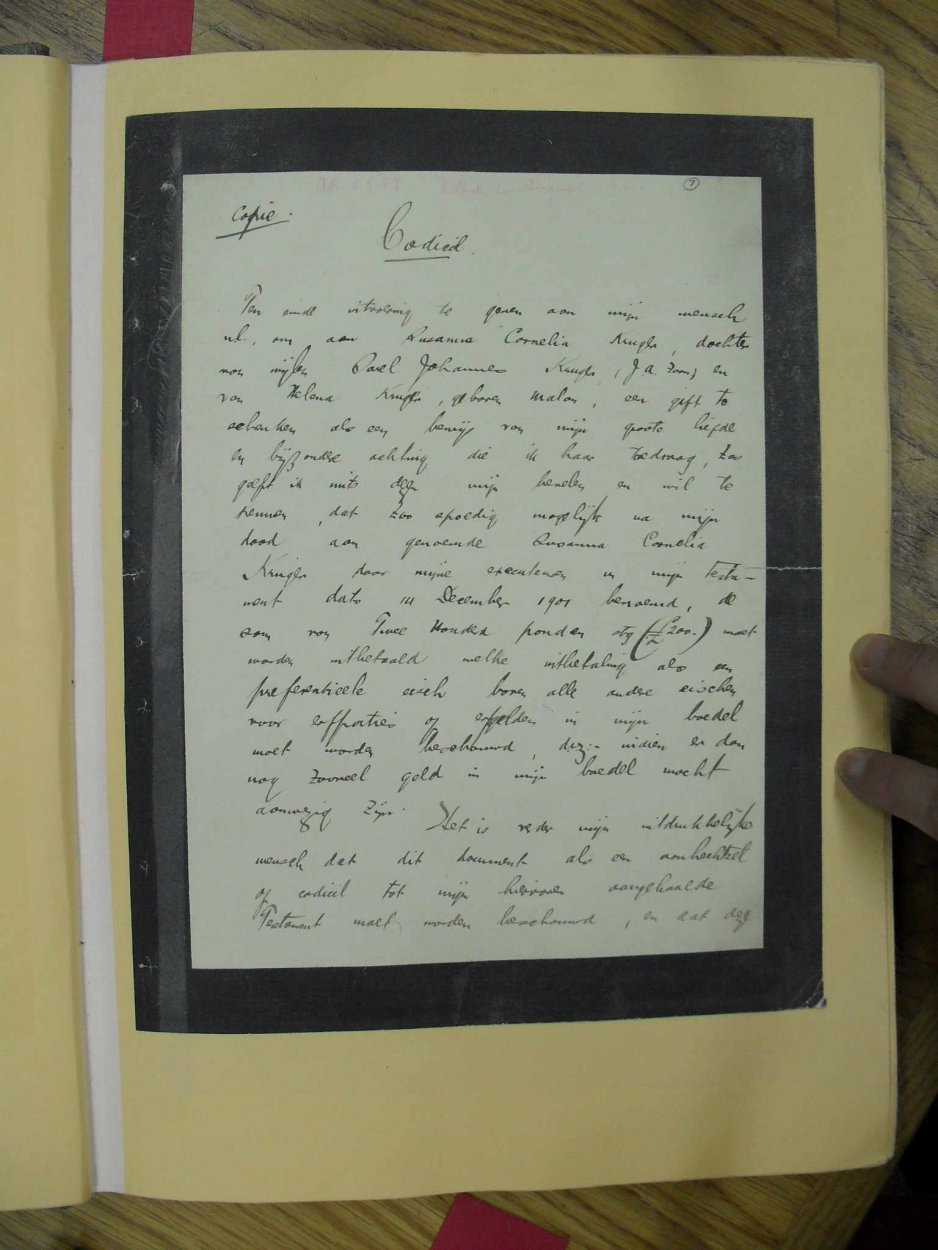 ①
Copie.
Codicil
Ten einde uitvoering te geven aan mijn wensch
nl., om aan Susanna Cornelia Kruger, dochter
van wijlen Carel Johannes Kruger, (J.A. Zoon) en
van Helena Kruger, geboren Malan, een gift te
schenken als een bewijs van mijn groote liefde
en bijzondre achting die ik haar toedraag, Zoo
geeft ik mits dezen mijn bevelen en wil te
kennen, dat Zoo spoedig mogelijk na mijn
dood aan genoemde Susanna Cornelia
Kruger door mijne executeuren in mijn Testa-
ment dato 14 December 1901 benoemd, de
som van Twee Honderd ponden stg (£200.) moet
worden uitbetaald welke uitbetaling als een
preferentieele eisch boven alle andre eischen
voor erfporties of erfgelden in mijn boedel
moet worden beschouwd, d.w.z. indien er dan
nog Zooveel geld in mijn boedel mocht
aanwezig Zijn. Het is verder mijn uitdrukkelijke
wensch dat dit document als een aanhechtsel
of codicil tot mijn hiervoren aangehaalde
Testament moet worden beschouwd, en dat deze